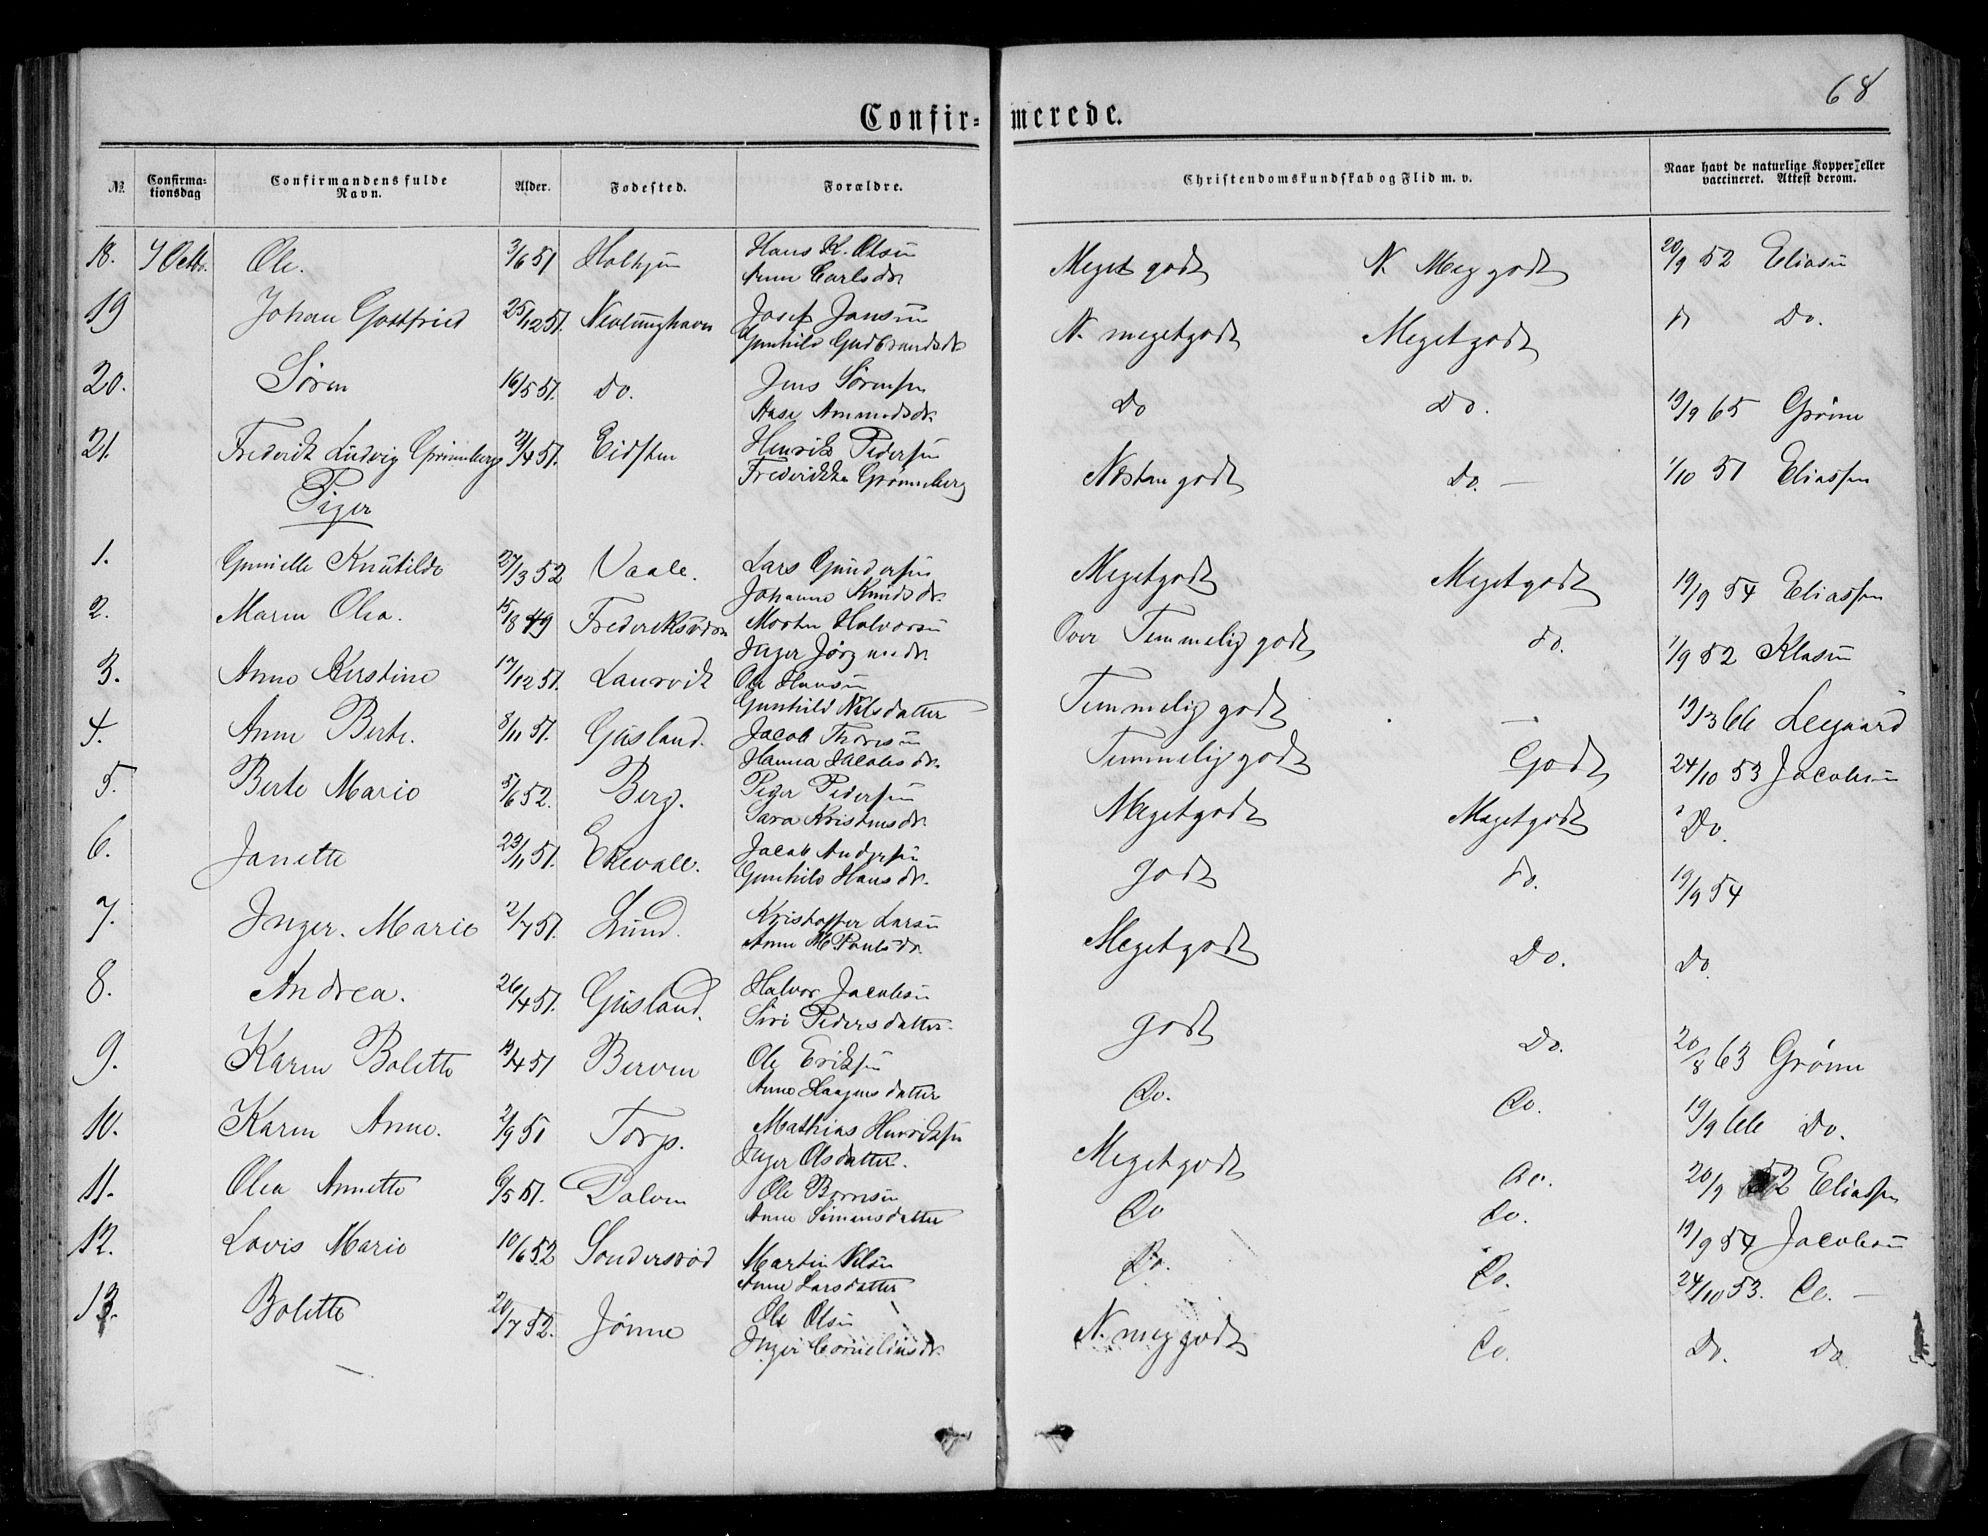 68
Confir- merede.
№ Confirma-tionsdag Confirmandens fulde Navn. Alder. Fødested. Forældre. Christendomskundskab og Flid m. v. Naar havt de naturlige Kopper eller vaccineret. Attest derom.
18. Octb. Ole. 3/6 51 Hans K. Olsen Meget godt N. Meg godt 20/9 52 Eliasen
Carlsdr
19 Johan Gottfried 25/12 51. Nevlunghavn Josef Jansen N. meget godt Meget godt Do.
Gunhild Gudbrandsdr
20. Sören 16/5 51. Do. Jens Sörensen Do Do. 19/9 65 Grønn
Aase Ammundsdr.
21. Frederik Ludvig Grönneberg /4 51. Eidsten Henrik Pedersen Næsten godt Do. — 1/10 51 Eliassen
Frederikke Grønneberg
Piger
1. Gunielle Knutilde 27/3 52 Vaale. Lars Gundersen Meget godt Meget godt 19/9 54 Eliassen
Johanne Knudsdr.
2. Maren Olea. 15/8 49 Frederiksværn Morten Halvorsen Over Temmelig godt do. 1/9 52 Klasen
Inger Jørgensdr.
3. Anne Kirstine 17/12 51. Laurvik Ole Hansen Temmelig godt — 19/3 66 Legaard
Gunhild Nilsdatter
4. Anne Berte. 8/11 51. Gusland. Jacob Thoresen Temmelig godt Godt 24/10 53 Jacobsen
Hanna Jacobsdr.
5. Berte Marie 5/6 52. Berg. Peder Pedersen Meget godt Meget godt Do.
Sara Kristensdr.
6. Janette 23/11 51. Ekevall. Jacob Andersen godt do. 19/9 54
Gunhild Hansdr.
7. Inger. Marie 2/7 51. Lund. Kristoffer Larsen Meget godt Do. Do.
Anne M Paulsdr.
8. Andrea. 26/4 51. Gusland. Halvor Jacobsen godt Do. 20/8 63 Grønn
Siri Pedersdatter.
9. Karen Bolette /4 51 Berven Ole Eriksen Do. Do. 19/9 66 Do.
Anne Haagensdatter
10. Karen Anne. 2/9 51 Torp. Mathias Henriksen Meget godt Do. 20/9 52 Eliassen
Inger Olsdatter.
11. Olea Annette 6/5 51. Dalen Ole Do Do. 19/9 54 Jacobsen
Anne Simensdatter
12. Lovis Marie 10/6 52 Söndersröd Martin Nilsen Do. Do. 24/10 53. Do. —
Anne Larsdatter
13. Bolette 20/7 52. Jönne Ole Olsen N. meg godt Do. Do. Do
Inger Corneliusdr.